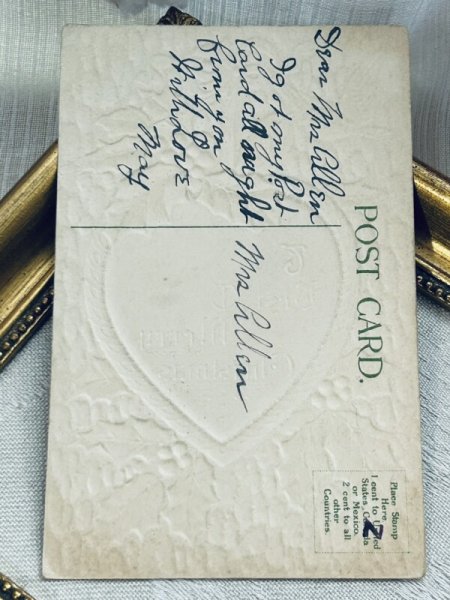 POST CARD.
Dear Mrs Allen
I got my Post
Card all right
from you
With Love
May
Mrs Allen
Place Stamp
Here
1 cent to United
States, Canada
or Mexico,
2 cent to all
other
Countries.
2